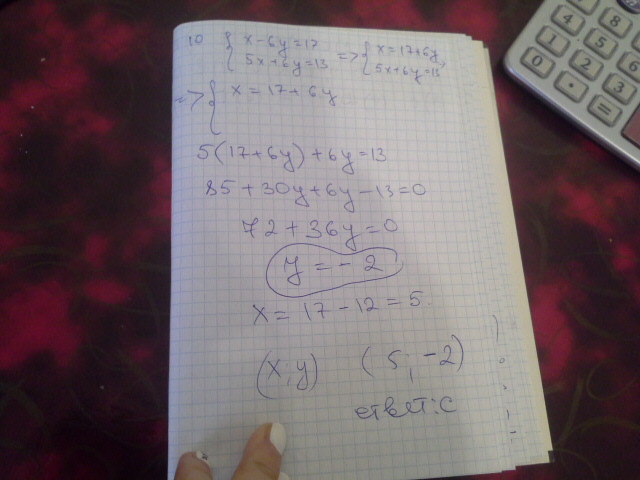 10 { x-6y=17 => { x=17+6y,
5x+6y=13 5x+6y=13
=> { x = 17 + 6y
5(17+6y)+6y=13
85+30y+6y-13=0
72+36y=0
y = -2
x = 17 - 12 = 5
(x, y) (5; -2)
ответ: C
8
4 5
1 2 6
0 . 3
=